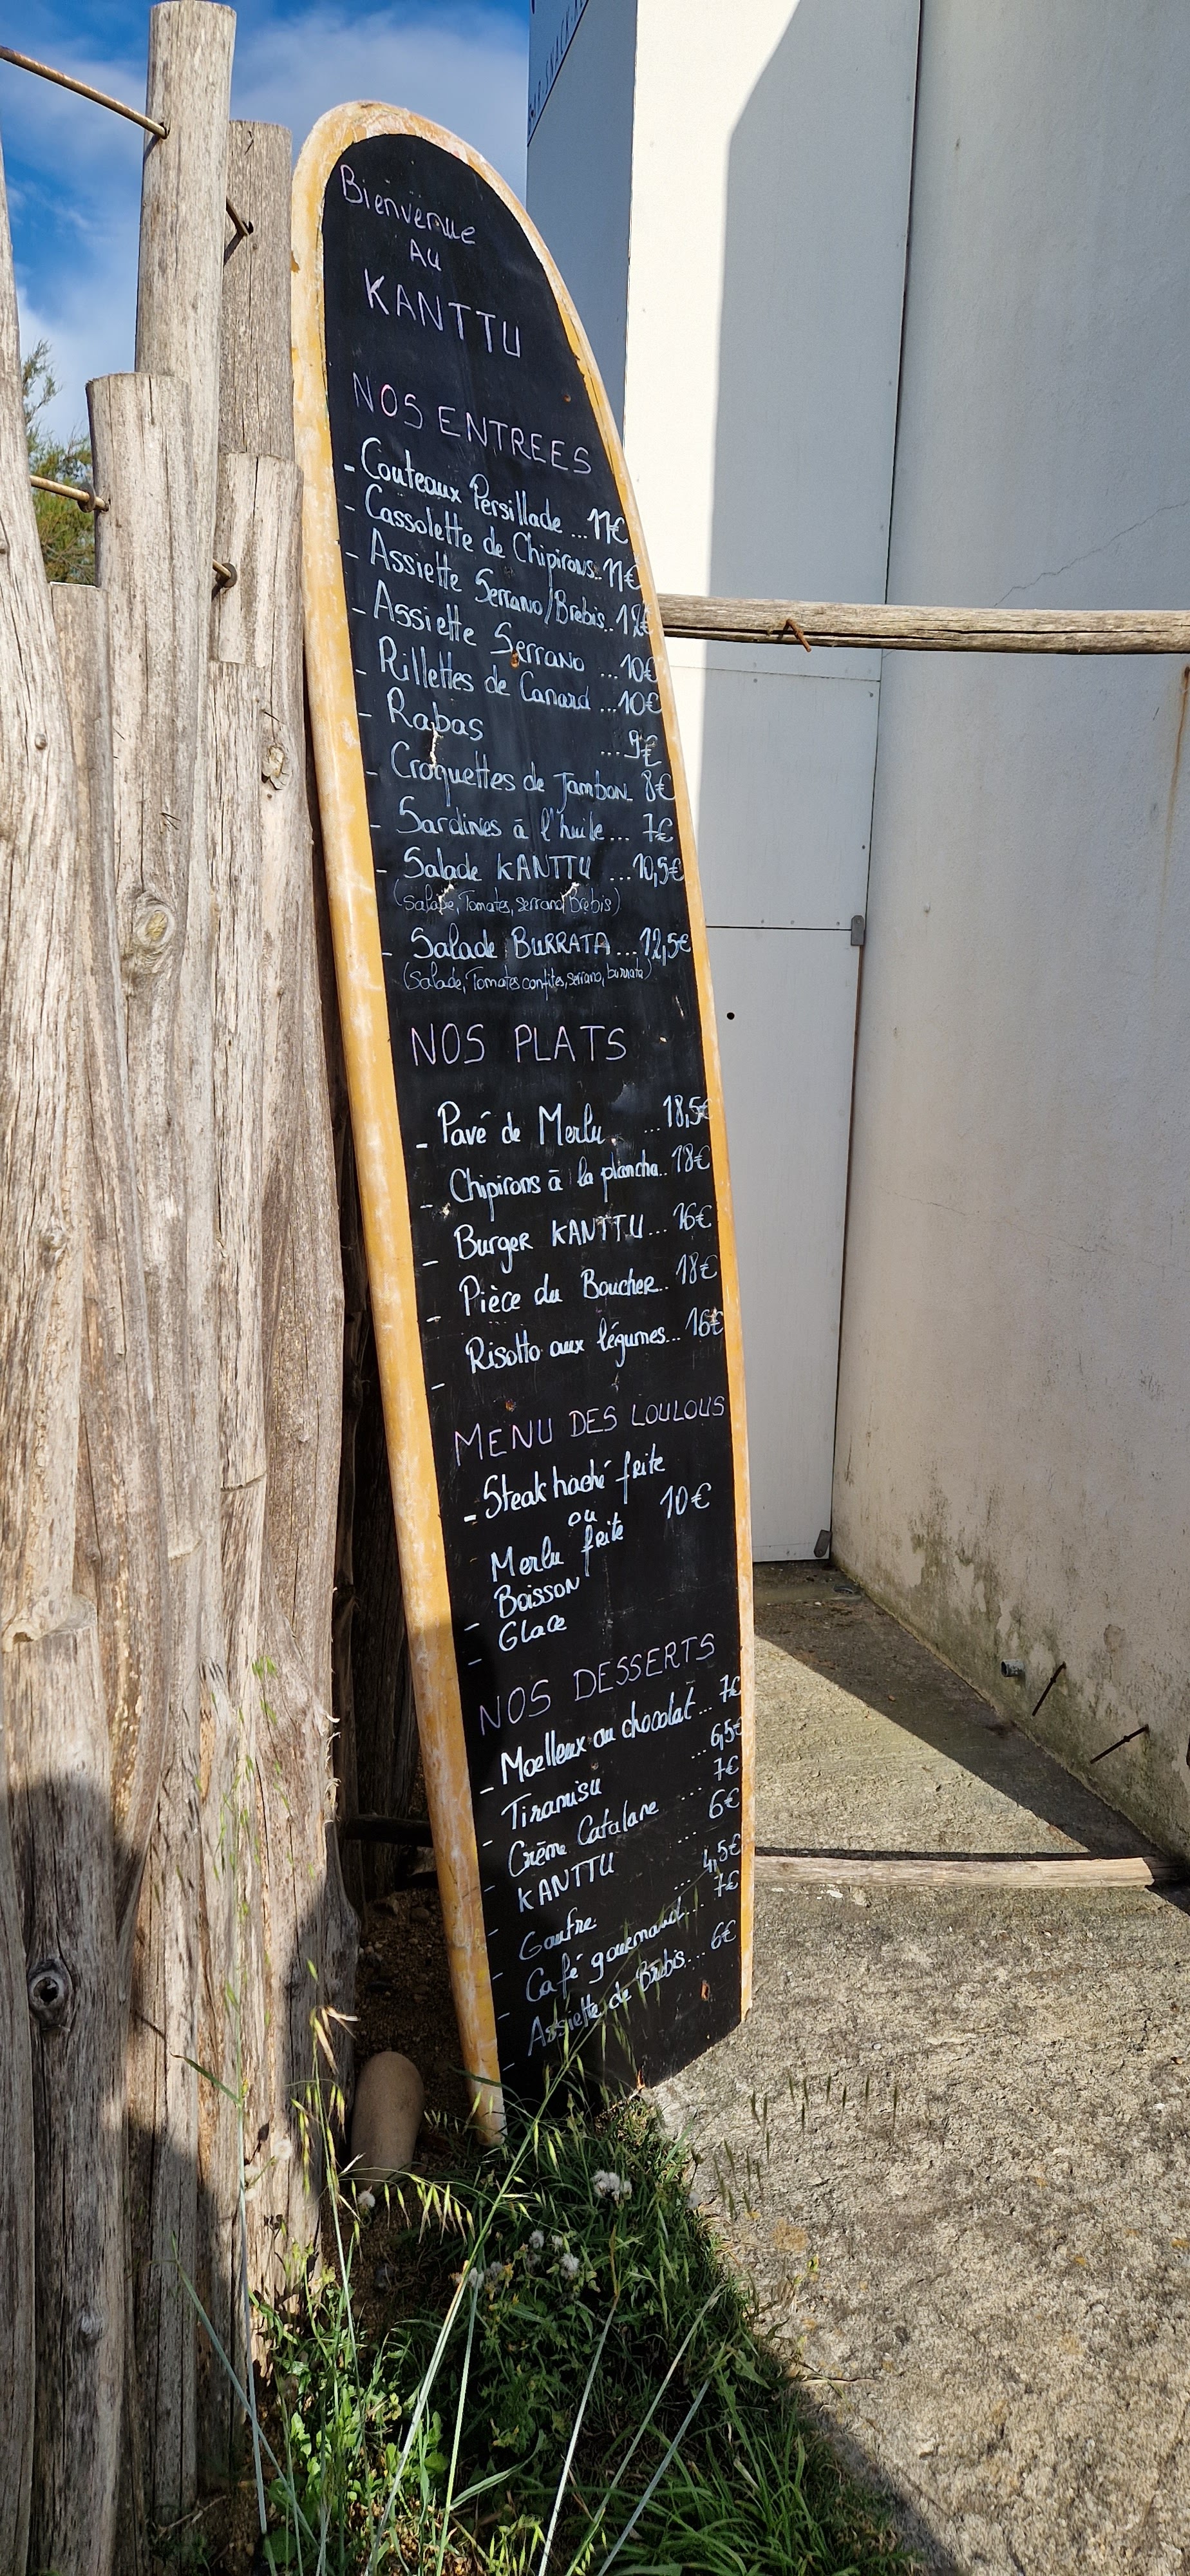 BAR-SNACK
Bienvenue
AU
KANTTU
NOS ENTREES
- Couteaux Persillade ... 11€
- Cassolette de Chipirons.. 11€
- Assiette Serrano/Brebis.. 12€
- Assiette Serrano ... 10€
- Rillettes de Canard ... 10€
- Rabas ... 9€
- Croquettes de Jambon 8€
- Sardines à l'huile ... 7€
- Salade KANTTU ... 10,5€
(Salade, Tomates, serrano, Brebis)
- Salade BURRATA ... 12,5€
(Salade, Tomates confites, serrano, burrata)
NOS PLATS
- Pavé de Merlu ... 18,5€
- Chipirons à la plancha.. 18€
- Burger KANTTU ... 16€
- Pièce du Boucher.. 18€
- Risotto aux légumes... 16€
MENU DES LOULOUS
- Steak haché frite
ou 10€
Merlu frite
- Boisson
- Glace
NOS DESSERTS
- Moelleux au chocolat ... 7€
- Tiramisu ... 6,5€
- Crème Catalane ... 7€
- KANTTU ... 6€
- Gaufre ... 4,5€
- Café gourmand... 7€
- Assiette de Brebis... 6€